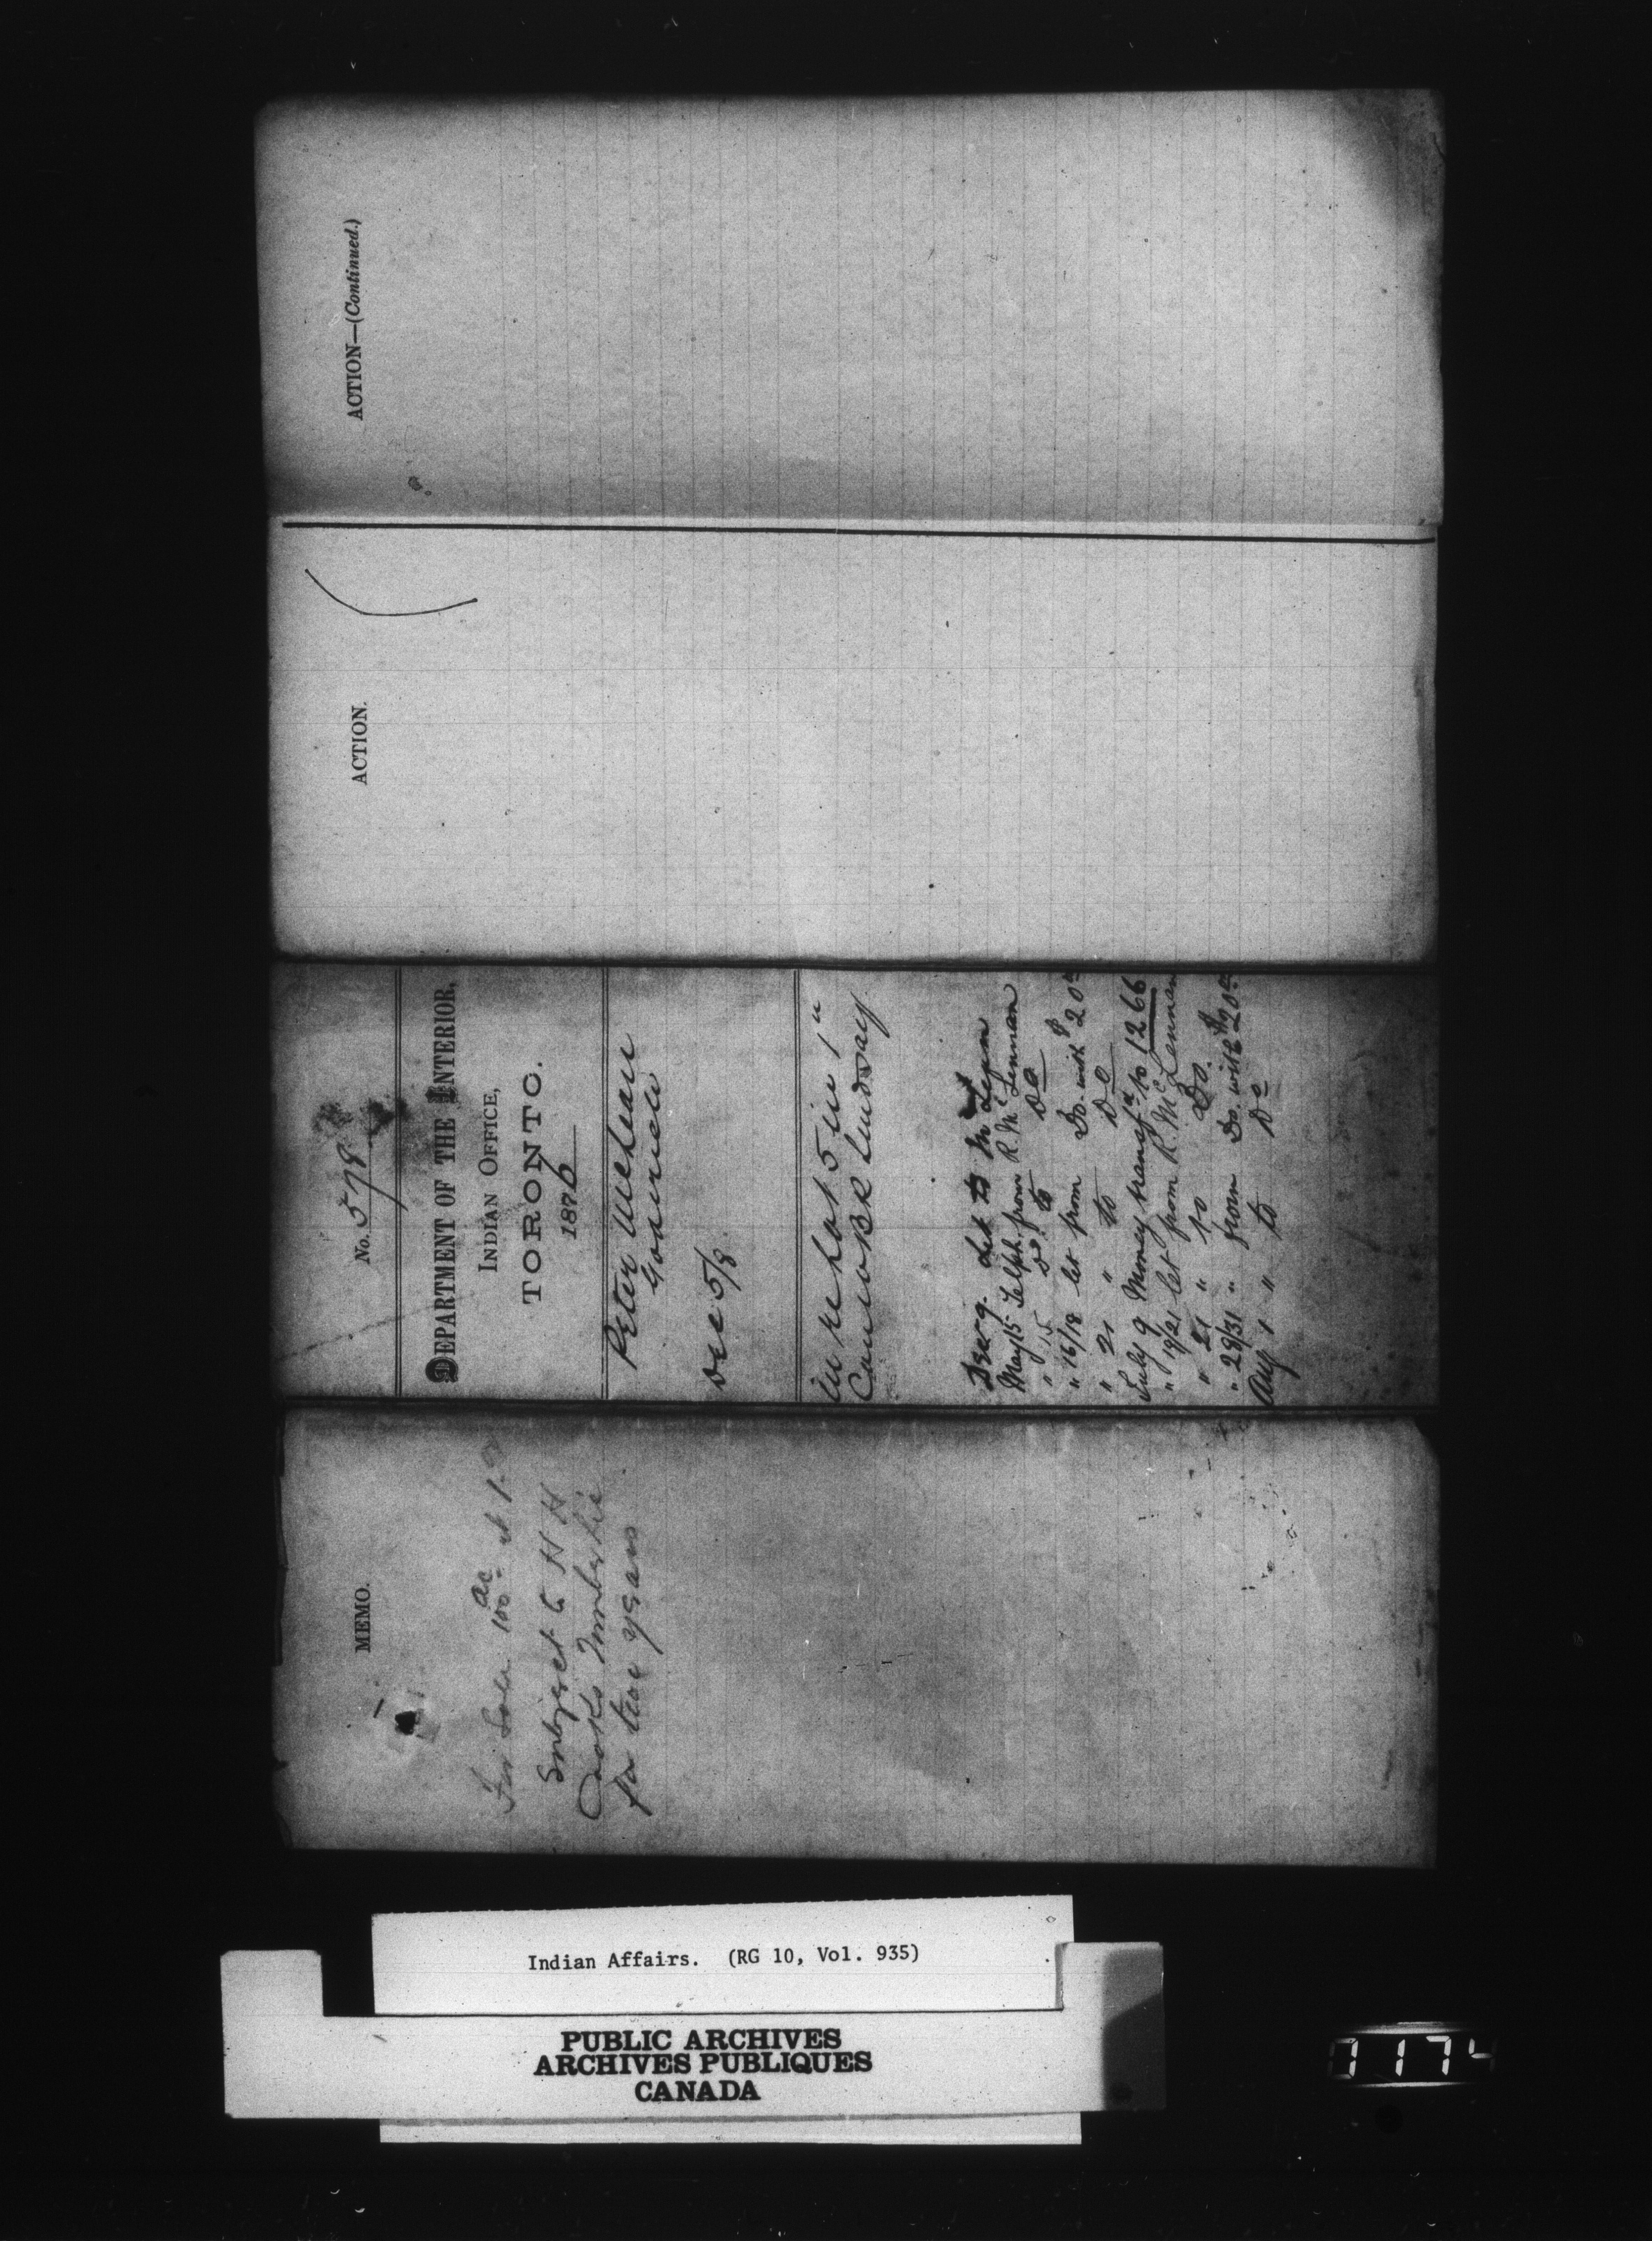 ACTION—(Continued.)
ACTION.
No. 578
DEPARTMENT OF THE INTERIOR,
INDIAN OFFICE,
TORONTO.
1876
Peter McLean
Dec 5/8
in re Lot 5 in 1st
Con Lindsay
Dec 9. Let to
May 15 Telph. from R. McLennan
" 15 Do. to Do
" 16/18 let from Do. with $20
" 21 " to Do
July 9 Money transfd to 1266
" 19/21 let from R. McLennan
" 21 " to Do.
" 28/31 " from Do. with $20
Aug 1 " to Do
MEMO.
For Sale 100 ac at 1.
Subject to H H
Cooks Timber lic
for two years
Indian Affairs. (RG 10, Vol. 935)
PUBLIC ARCHIVES
ARCHIVES PUBLIQUES
CANADA
7174